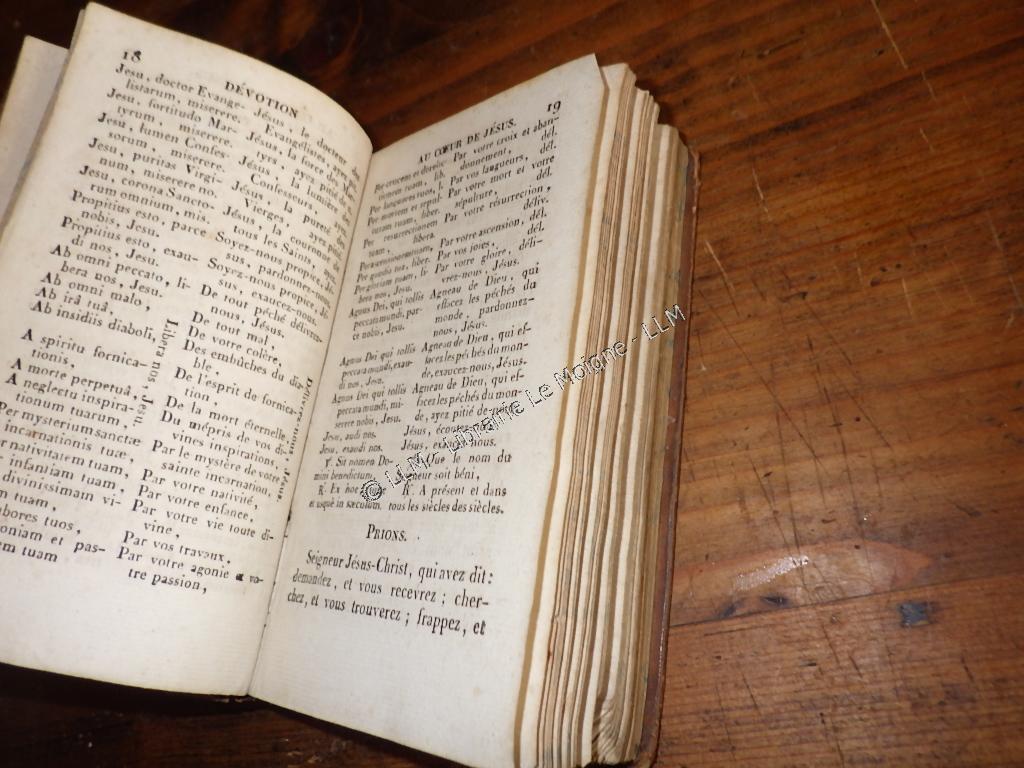 18
DÉVOTION
Jesu, doctor Evange-
listarum, miserere.
Jesu, fortitudo Mar-
tyrum, miserere.
Jesu, lumen Confes-
sorum, miserere.
Jesu, puritas Virgi-
num, miserere no.
Jesu, corona Sancto-
rum omnium, mis.
Propitius esto, parce
nobis, Jesu.
Propitius esto, exau-
di nos, Jesu.
Ab omni peccato, li-
bera nos, Jesu.
Ab omni malo,
Ab irâ tuâ,
Ab insidiis diaboli,
A spiritu fornica-
tionis,
A morte perpetuâ,
A neglectu inspira-
tionum tuarum,
Per mysterium sanctæ
incarnationis tuæ,
nativitatem tuam,
infantiam tuam,
divinissimam vi-
tuam,
labores tuos,
oniam et pas-
em tuam
Libera nos, Jesu.
Jésus, le docteur des
Évangélistes, ayez pi.
Jésus, la force des Mar-
tyrs, ayez pitié de
Jésus, la lumière des
Confesseurs, ayez
Jésus, la pureté des
Vierges, ayez pitié
Jésus, la couronne de
tous les Saints, ayez
Soyez-nous propice, Jé-
sus, pardonnez-nous.
Soyez-nous propice, Jé-
sus, exaucez-nous.
De tout péché délivrez-
nous, Jésus.
De tout mal,
De votre colère,
Des embûches du dia-
ble,
De l'esprit de fornica-
tion,
De la mort éternelle,
Du mépris de vos di-
vines inspirations,
Par le mystère de votre
sainte incarnation,
Par votre nativité,
Par votre enfance,
Par votre vie toute di-
vine,
Par vos travaux,
Par votre agonie
tre passion,
Délivrez-nous, Jésus.
19
AU CŒUR DE JÉSUS.
Per crucem et derelic-
tionem tuam, lib.
Per languores tuos, l.
Per mortem et sepul-
turam tuam, liber.
Per resurrectionem
tuam, libera.
Per ascensionem tuam,
Per gaudia tua, liber.
Per gloriam tuam, li-
bera nos, Jesu.
Agnus Dei, qui tollis
peccata mundi, par-
ce nobis, Jesu.
Agnus Dei qui tollis
peccata mundi, exau-
di nos, Jesu.
Agnus Dei qui tollis
peccata mundi, mi-
serere nobis, Jesu.
Jesu, audi nos.
Jesu, exaudi nos.
℣. Sit nomen Do-
mini benedictum,
℟. Ex hoc
et usque in sæculum.
Par votre croix et aban-
donnement, dél.
Par vos langueurs, dél.
Par votre mort et votre
sépulture, dél.
Par votre résurrection,
déliv.
Par votre ascension, dél.
Par vos joies, dél.
Par votre gloire, déli-
vrez-nous, Jésus.
Agneau de Dieu, qui
effacez les péchés du
monde, pardonnez-
nous, Jésus.
Agneau de Dieu, qui ef-
facez les péchés du mon-
de, exaucez-nous, Jésus.
Agneau de Dieu, qui ef-
facez les péchés du mon-
de, ayez pitié de nous,
Jésus, écoutez-nous.
Jésus, exaucez-nous.
Que le nom du
Seigneur soit béni,
℟. A présent et dans
tous les siècles des siècles.
PRIONS.
Seigneur Jésus-Christ, qui avez dit:
demandez, et vous recevrez; cher-
chez, et vous trouverez; frappez, et
© LLM - Librairie Le Moigne - LLM